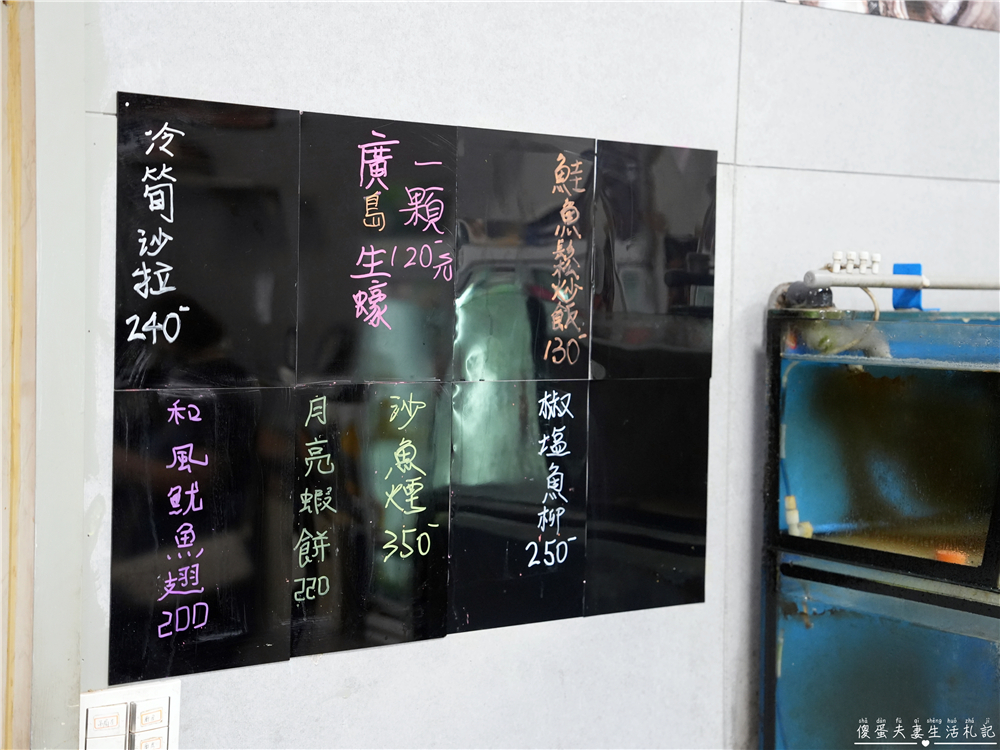 冷筍沙拉
240-
廣島生蠔
一顆
120-元
鮭魚鬆炒飯
130-
和風魷魚翅
200
月亮蝦餅
220
沙魚煙
350-
椒塩魚柳
250-
shǎ dàn fū qī shēng huó zhá jì
傻蛋夫妻生活札記